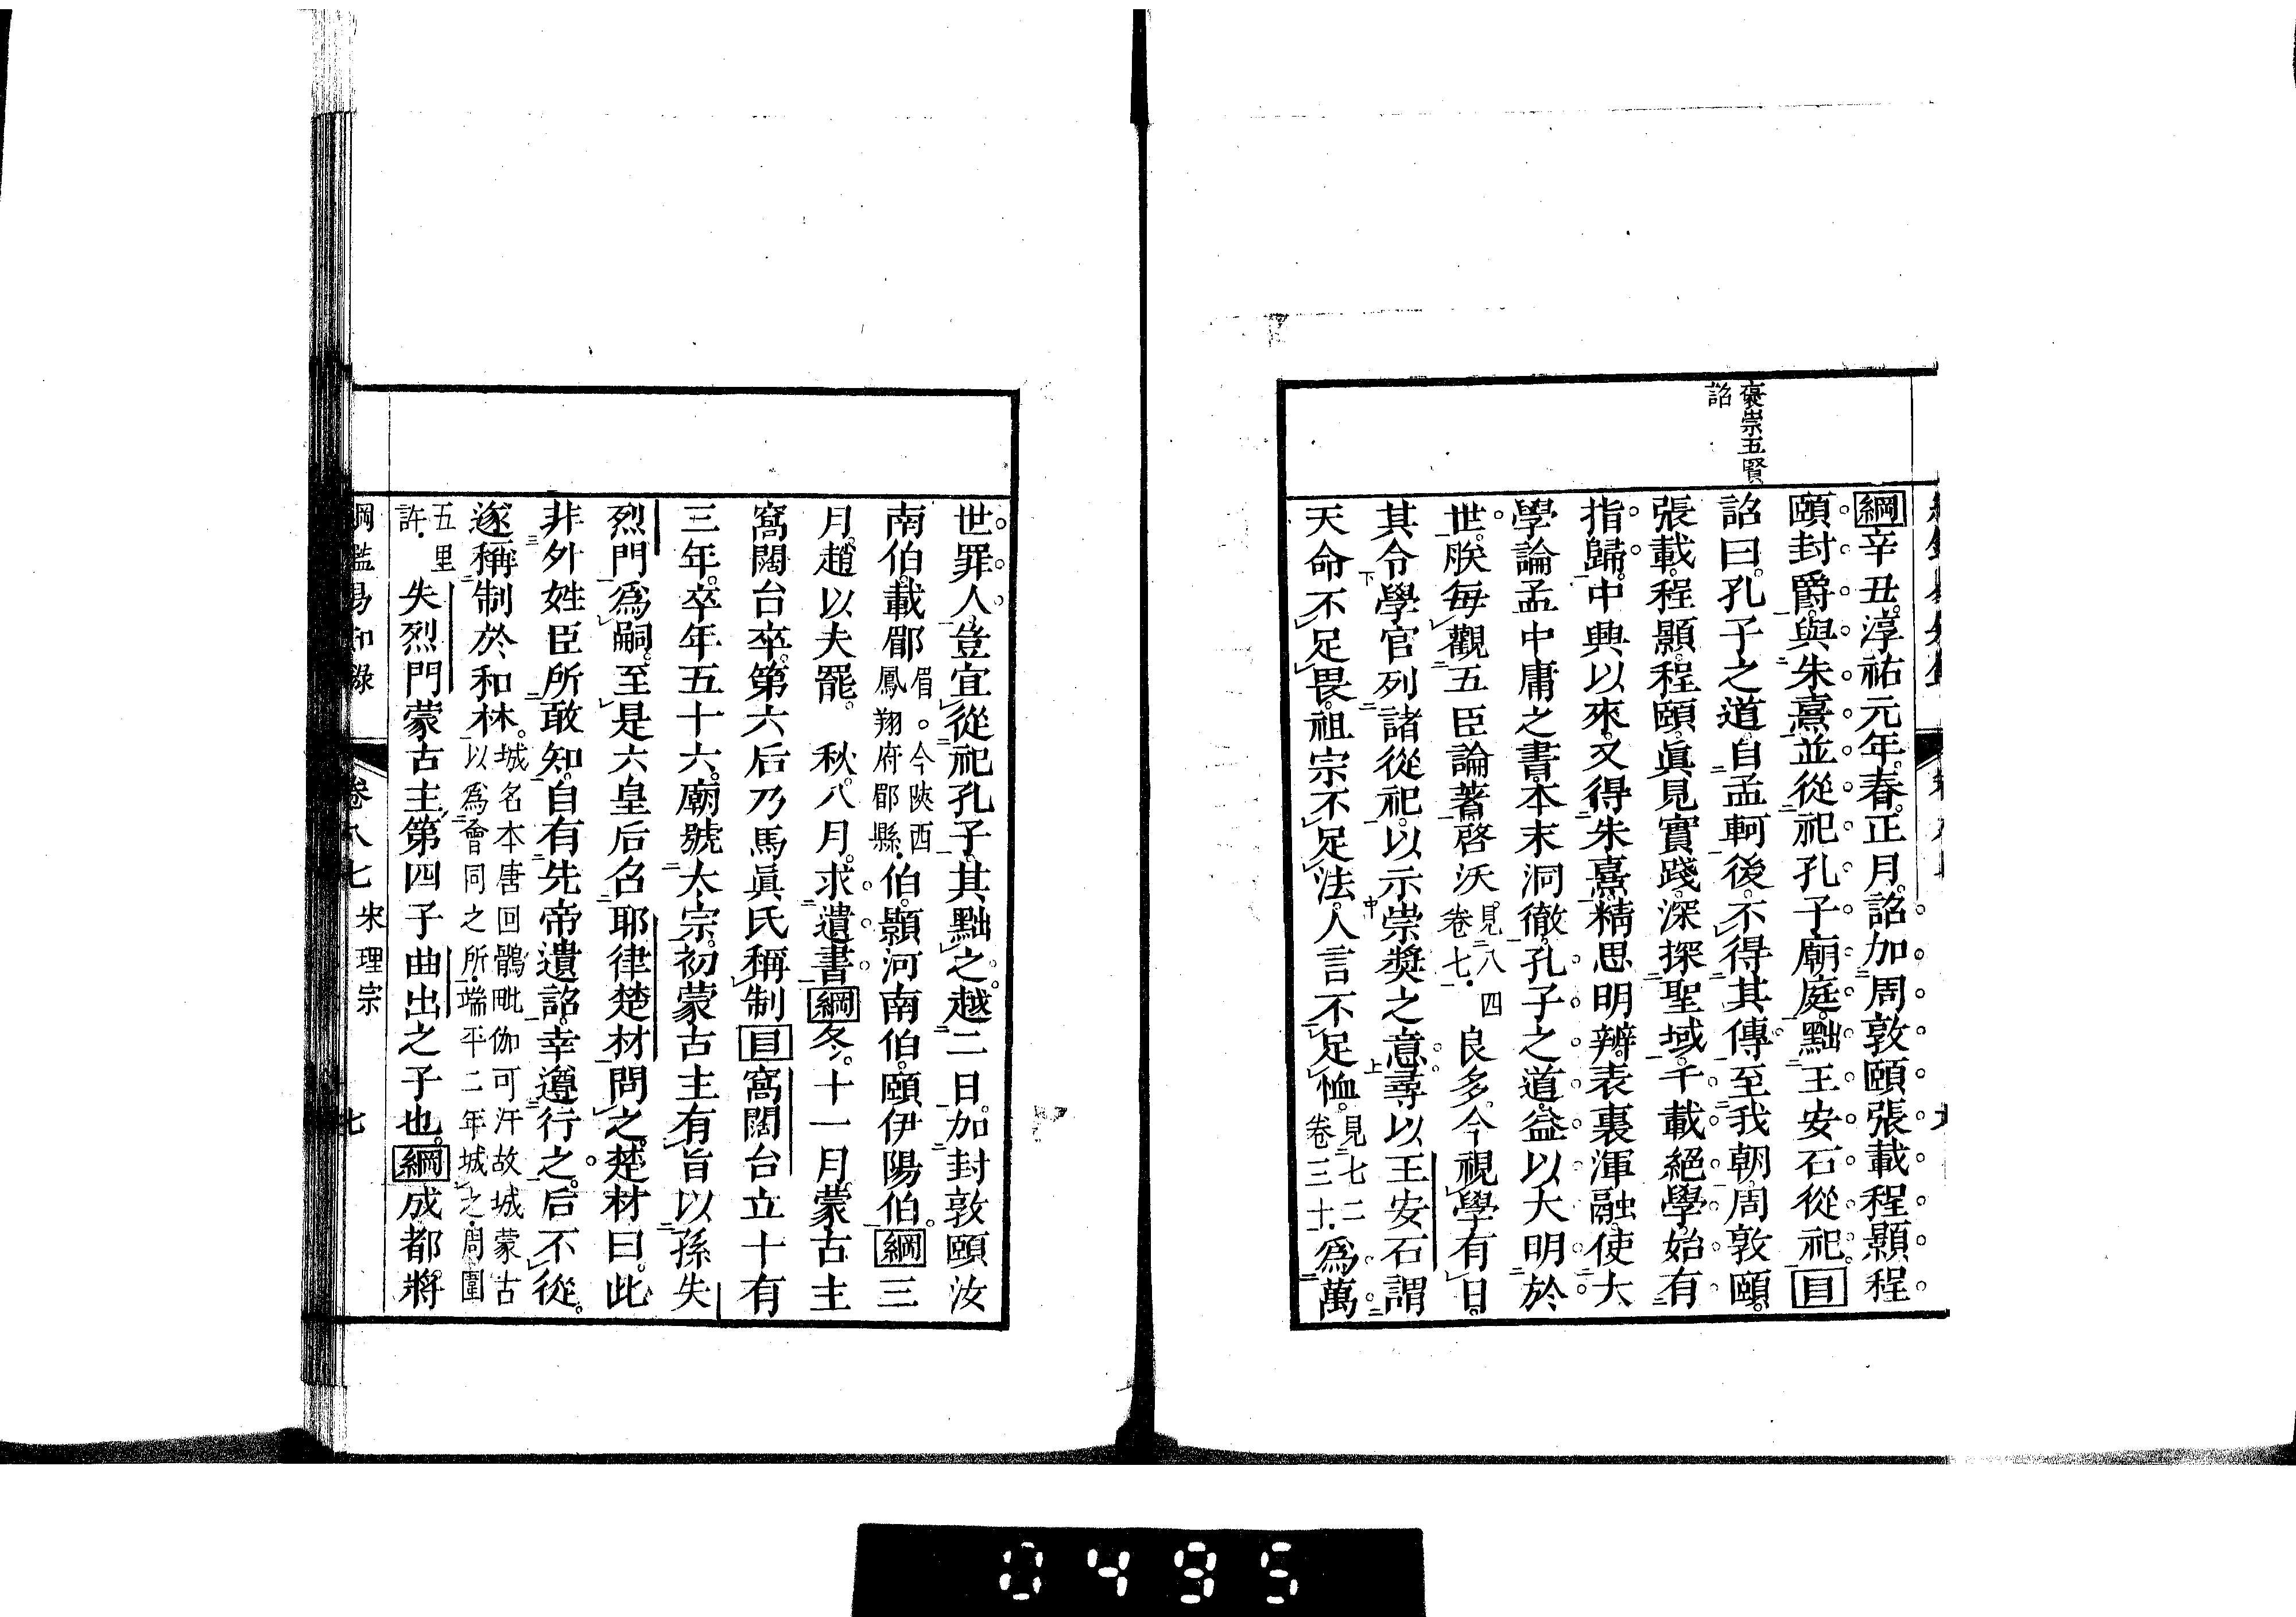 褒崇五賢
詔
綱辛丑。淳祐元年。春。正月。詔加周敦頤張載程顥程
頤封爵。與朱熹並從祀孔子廟庭。黜王安石從祀。目
詔曰。孔子之道。自孟軻後。不得其傳。至我朝。周敦頤。
張載。程顥。程頤。眞見實踐。深探聖域。千載絕學。始有
指歸。中興以來。又得朱熹。精思明辨。表裏渾融。使大
學論孟中庸之書。本末洞徹。孔子之道。益以大明於
世。朕每觀五臣論著。啓沃見八四卷七良多。今視學有日。
其令學官列諸從祀。以示崇奬之意。尋以王安石謂
天命不足畏。祖宗不足法。人言不足恤。見七二卷三十爲萬
世罪人。豈宜從祀孔子。其黜之。越二日。加封敦頤汝
南伯。載郿眉。今陝西鳳翔府郿縣伯。顥河南伯。頤伊陽伯。綱三
月。趙以夫罷。 秋。八月。求遺書。綱冬。十一月。蒙古主
窩闊台卒。第六后乃馬眞氏稱制。目窩闊台立十有
三年。卒年五十六。廟號太宗。初蒙古主有旨以孫失
烈門爲嗣。至是六皇后召耶律楚材問之。楚材曰。此
非外姓臣所敢知。自有先帝遺詔。幸遵行之。后不從。
遂稱制於和林。城名本唐回鶻毗伽可汗故城蒙古以爲會同之所端平二年城之周圍
五里許失烈門蒙古主第四子曲出之子也。綱成都將
綱鑑易知錄 卷八七 宋理宗 七